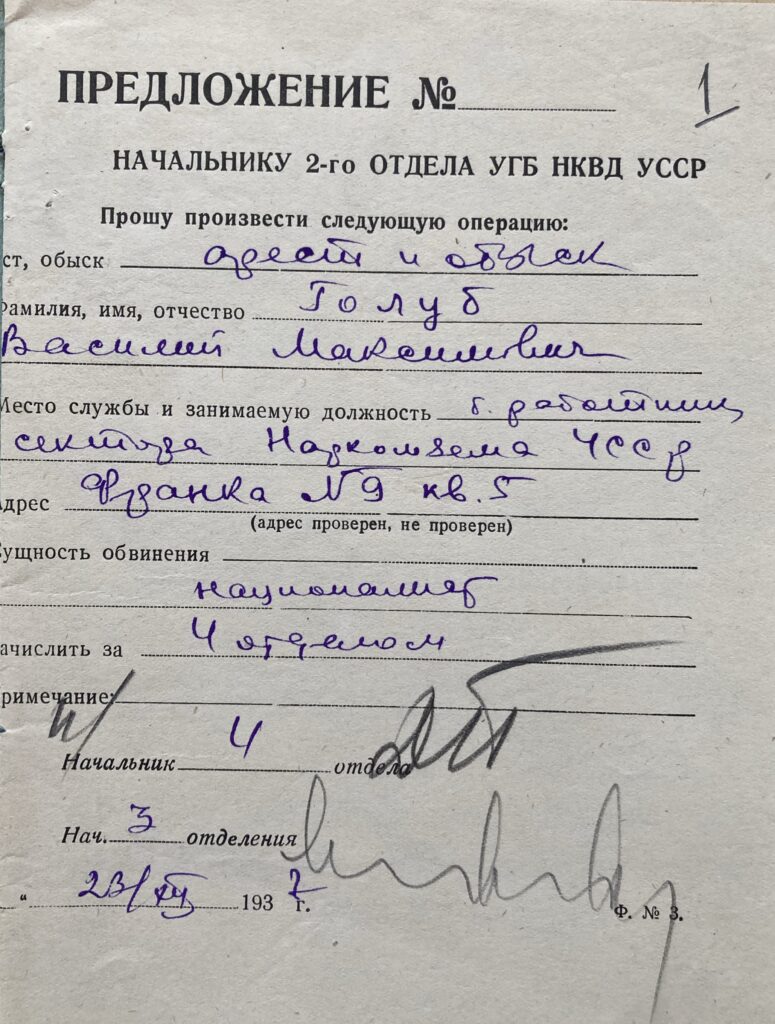 ПРЕДЛОЖЕНИЕ №
1
НАЧАЛЬНИКУ 2-го ОТДЕЛА УГБ НКВД УССР
Прошу произвести следующую операцию:
ст, обыск арест и обыск
Фамилия, имя, отчество Голуб
Василий Максимович
Место службы и занимаемую должность б. работник
сектора Наркомзема УССР
Адрес Франка №9 кв. 5
(адрес проверен, не проверен)
Сущность обвинения
националист
ачислить за 4 отделом
римечание:
Начальник 4 отдела
Нач. 3 отделения
" 23/XII 1937 г.
Ф. № 3.